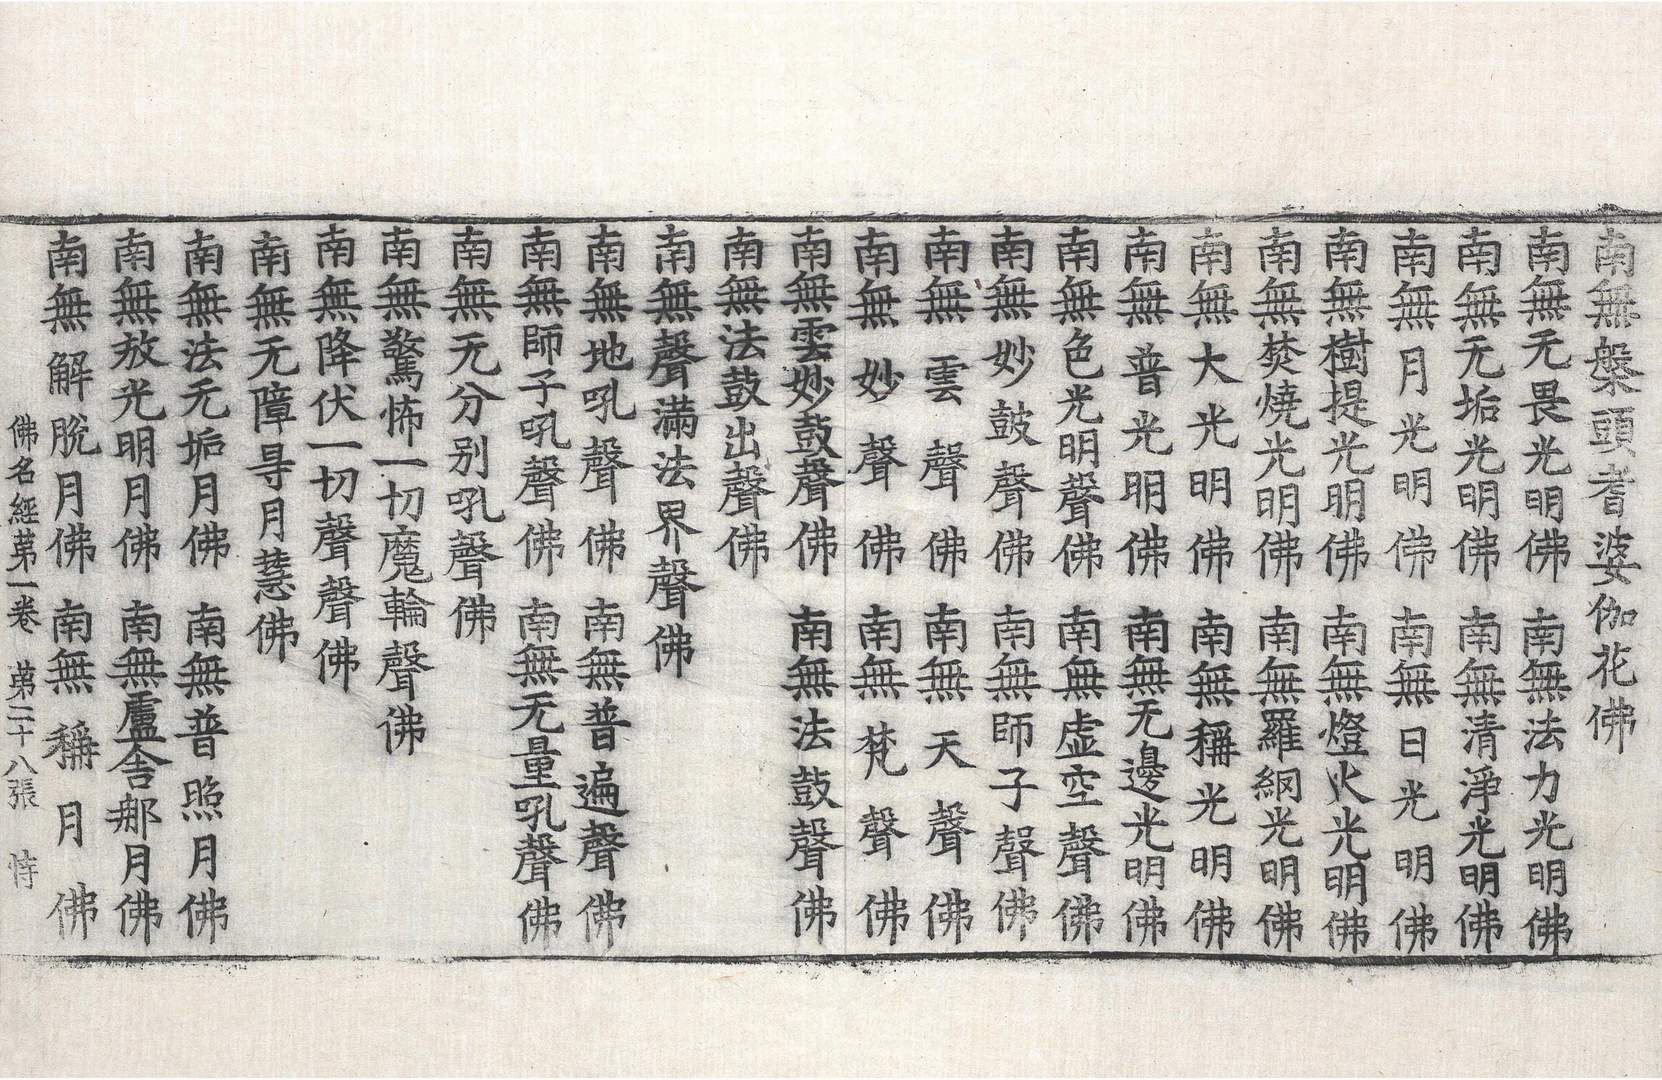 南無槃頭耆婆伽花佛
南無无畏光明佛 南無法力光明佛
南無无垢光明佛 南無清淨光明佛
南無月光明佛 南無日光明佛
南無樹提光明佛 南無燈火光明佛
南無焚燒光明佛 南無羅網光明佛
南無大光明佛 南無稱光明佛
南無普光明佛 南無无邊光明佛
南無色光明聲佛 南無虛空聲佛
南無妙皷聲佛 南無師子聲佛
南無雲聲佛 南無天聲佛
南無妙聲佛 南無梵聲佛
南無雲妙鼓聲佛 南無法鼓聲佛
南無法鼓出聲佛
南無聲滿法界聲佛
南無地吼聲佛 南無普遍聲佛
南無師子吼聲佛 南無无量吼聲佛
南無无分别吼聲佛
南無驚怖一切魔輪聲佛
南無降伏一切聲聲佛
南無无障㝵月慧佛
南無法无垢月佛 南無普照月佛
南無放光明月佛 南無盧舍那月佛
南無解脫月佛 南無稱月佛
佛名經苐一卷 苐二十八張 恃